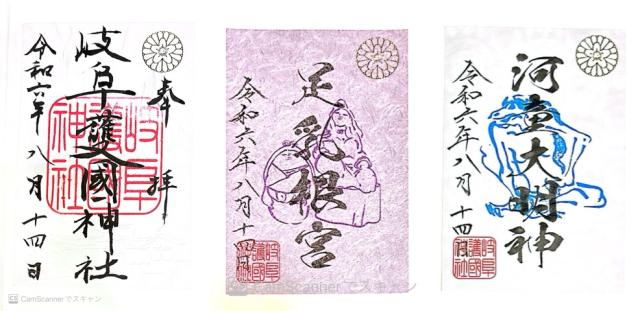 奉拝
岐阜護國神社
令和六年八月十四日
岐阜護國神社
CS CamScanner でスキャン
足乳根宮
令和六年八月十四日
岐阜護國神社
CS CamScanner でスキャン
河童大明神
令和六年八月十四日
岐阜護國神社